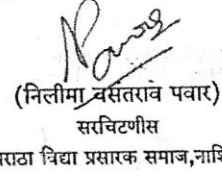 (निलीमा वसंतराव पवार)
सरचिटणीस
मराठा विद्या प्रसारक समाज,नाशि